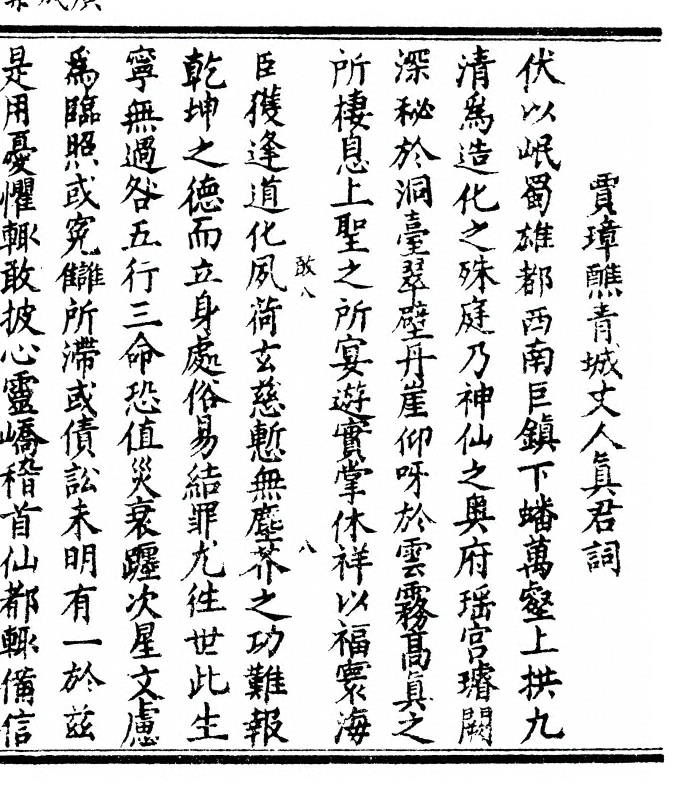 賈璋醮青城丈人眞君詞
伏以岷蜀雄都西南巨鎮下蟠萬壑上拱九
清爲造化之殊庭乃神仙之奧府瑶宫璿闕
深秘於洞臺翠壁丹崖仰呀於雲霧高眞之
所棲息上聖之所宴遊實掌休祥以福寰海
敢八
八
臣獲逢道化夙荷玄慈慙無塵芥之功難報
乾坤之德而立身處俗易結罪尤徃世此生
寧無過咎五行三命恐值災衰躔次星文慮
爲臨照或寃讎所滯或債訟未明有一於兹
是用憂懼輙敢披心靈嶠稽首仙都輙備信